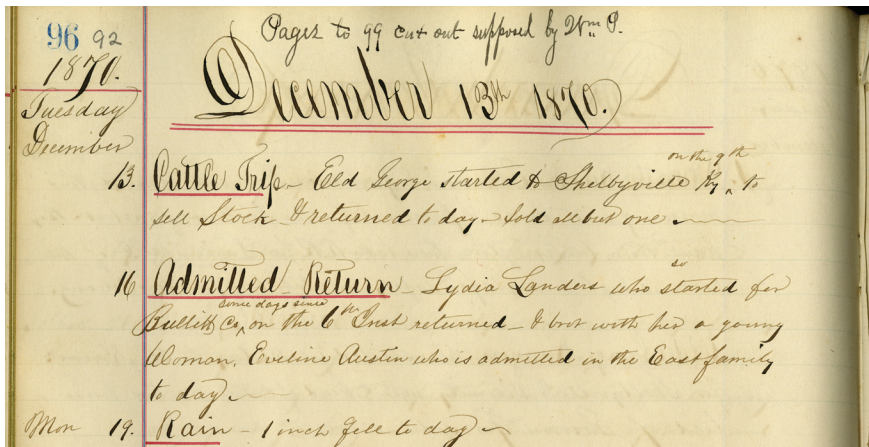 96 92 Pages to 99 cut out supposed by Wm P.
1870. December 13th 1870.
Tuesday
December
13. Cattle Trip – Eld George started to Shelbyville Ky ^ on the 9th to
sell Stock – & returned to day – sold all but one.
16 Admitted – Return – Lydia Landers who so started for
Bullitt Co, ^ some days since on the 6th Inst returned – & brot with her a young
Woman, Eveline Austin who is admitted in the East family
to day –
Mon 19. Rain – 1 inch fell to day –